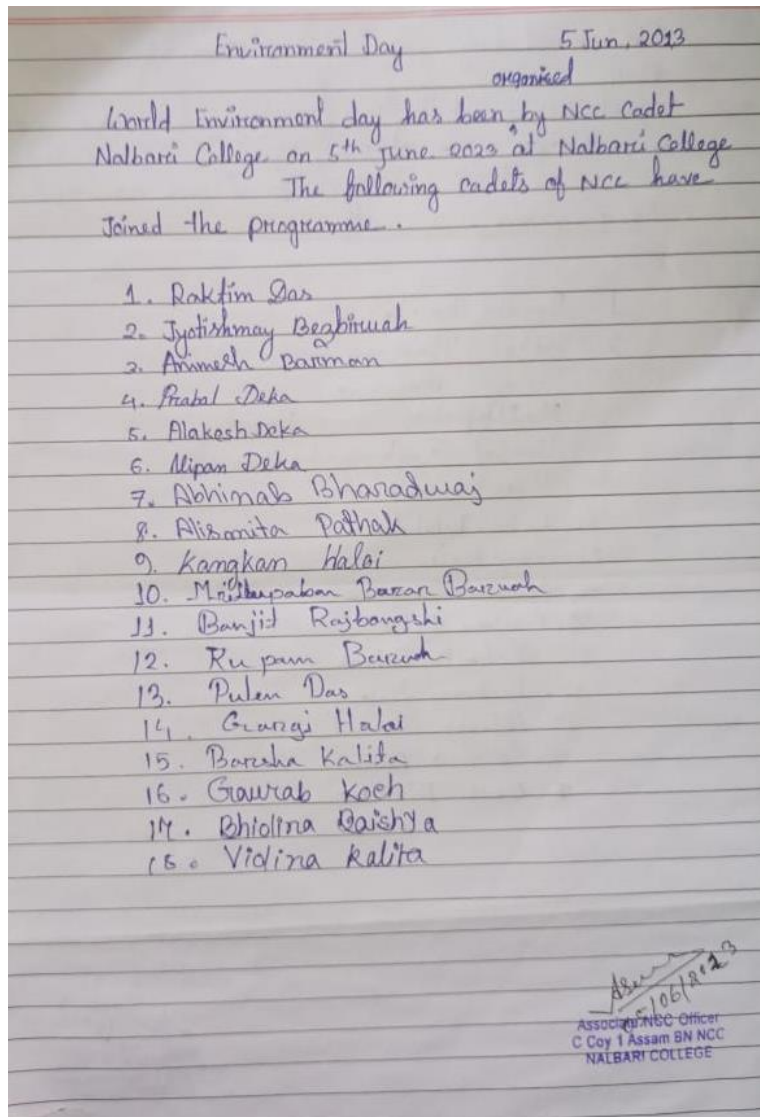 Environment Day 5 Jun, 2013
organised
World Environment day has been by NCC Cadet
Nalbari College on 5th June 2023 at Nalbari College
The following cadets of NCC have
Joined the programme.
1. Raktim Das
2. Jyotishmay Bezbaruah
3. Animesh Barman
4. Prabal Deka
5. Alakesh Deka
6. Nipan Deka
7. Abhinab Bharadwaj
8. Alismita Pathak
9. Kangkan Haloi
10. Baran Baruah
11. Banjit Rajbongshi
12. Rupam Baruah
13. Pulen Das
14. Gargi Haloi
15. Barsha Kalita
16. Gaurab Koch
17. Bhiolina Baishya
18. Vidina Kalita
05/06/2023
Associate NCC Officer
C Coy 1 Assam BN NCC
NALBARI COLLEGE